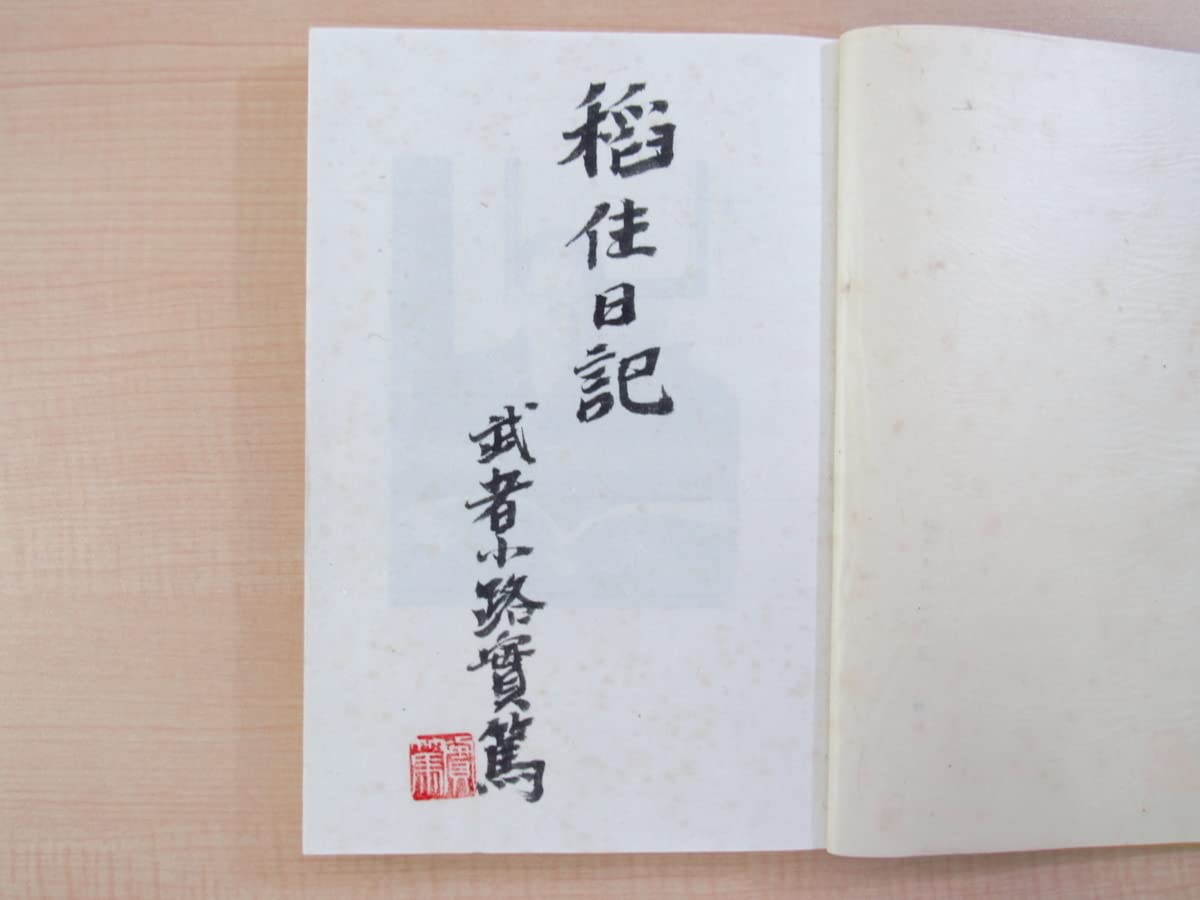 稻住日記
武者小路實篤
實篤